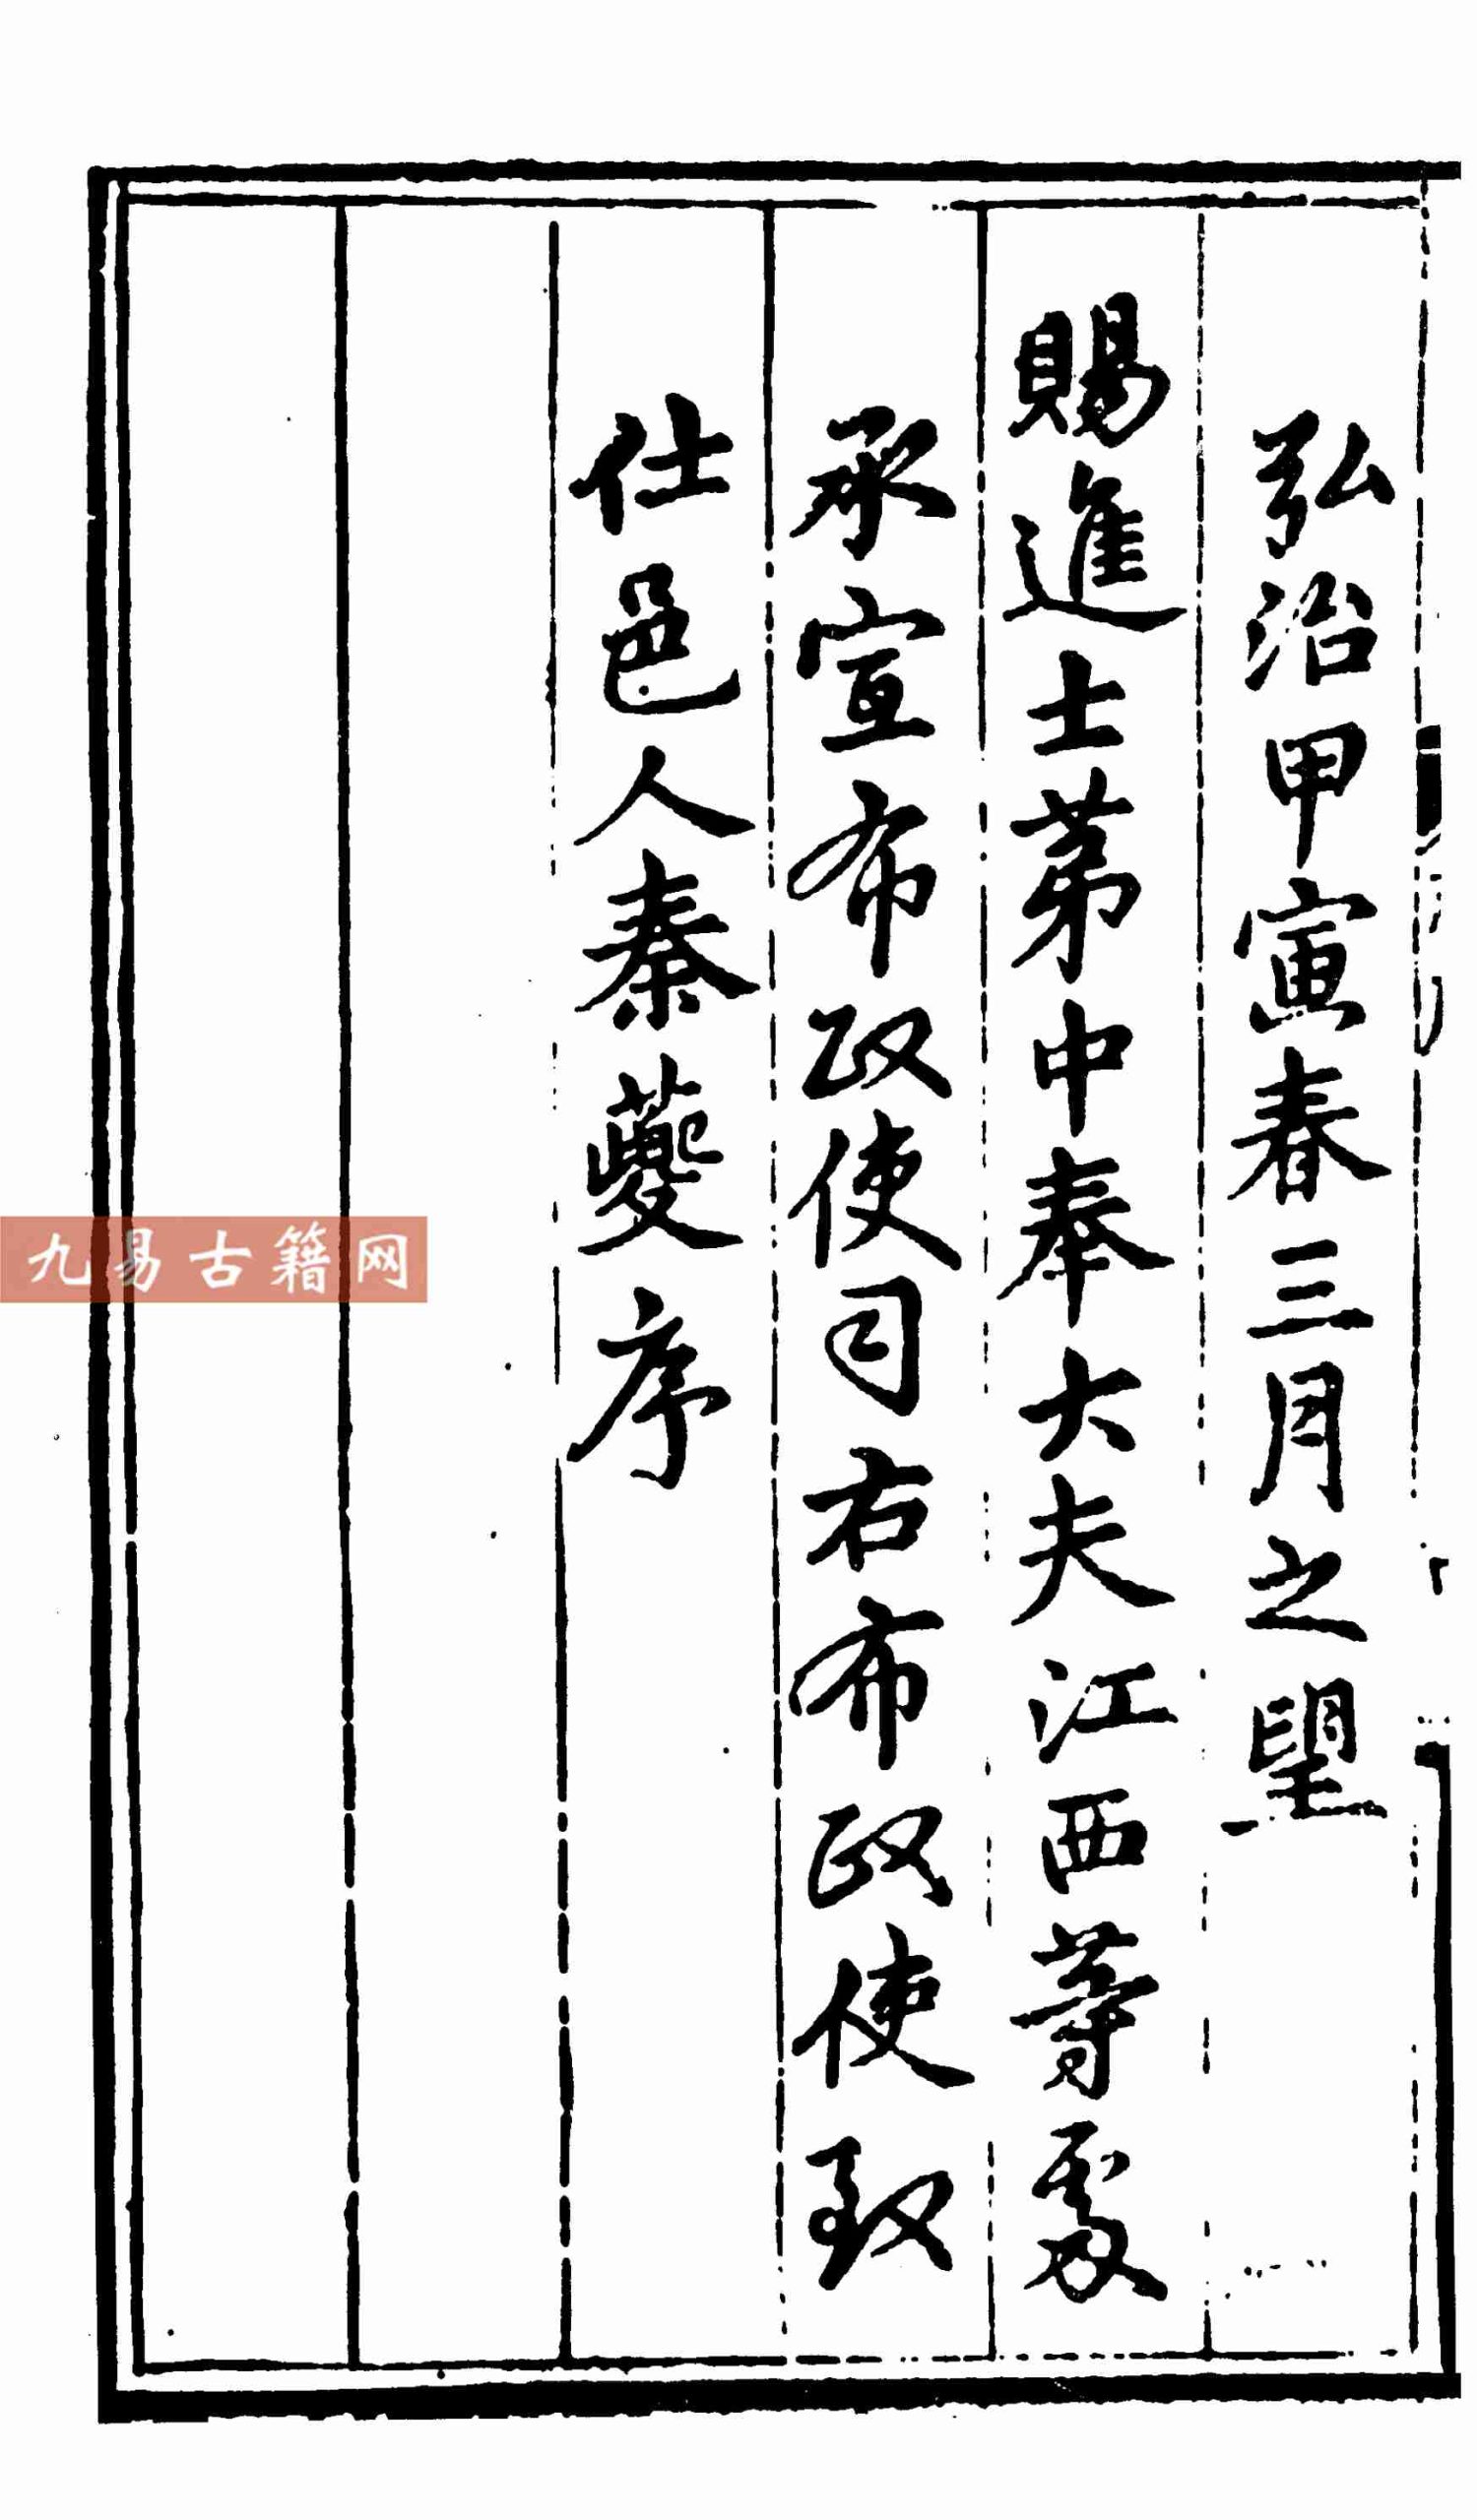 弘治甲寅春三月之望
賜進士第中奉大夫江西等處
承宣布政使司右布政使致
仕邑人秦夔序
九易古籍网